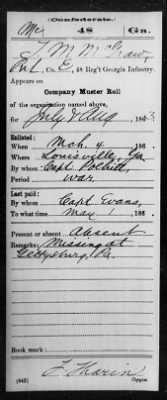 (Confederate.)
Mc 48 Ga.
T. M. McGraw,
Pvt., Co. E, 48 Reg't Georgia Infantry.
Appears on
Company Muster Roll
of the organization named above,
for July & Aug, 1863
Enlisted:
When Mch. 4, 186
Where Louisville, Ga
By whom Capt. Polhill
Period war
Last paid:
By whom Capt Evans,
To what time May 1, 186
Present or absent Absent
Remarks: Missing at
Gettysburg, Pa.
Book mark:
(642) Copyist.